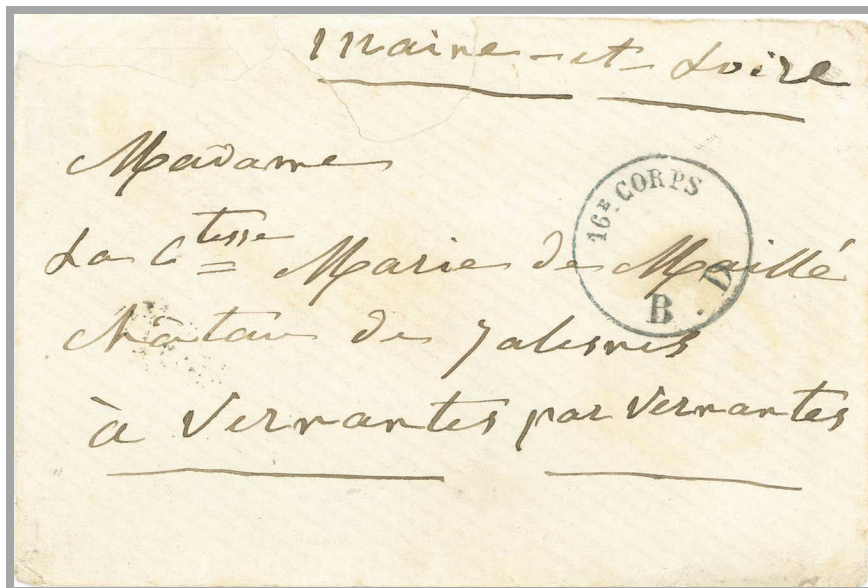 Maine-et-Loire
Madame
La Ctesse Marie de Maillé
Château de Jalesnes
à Vernantes par Vernantes
16E CORPS
B. D